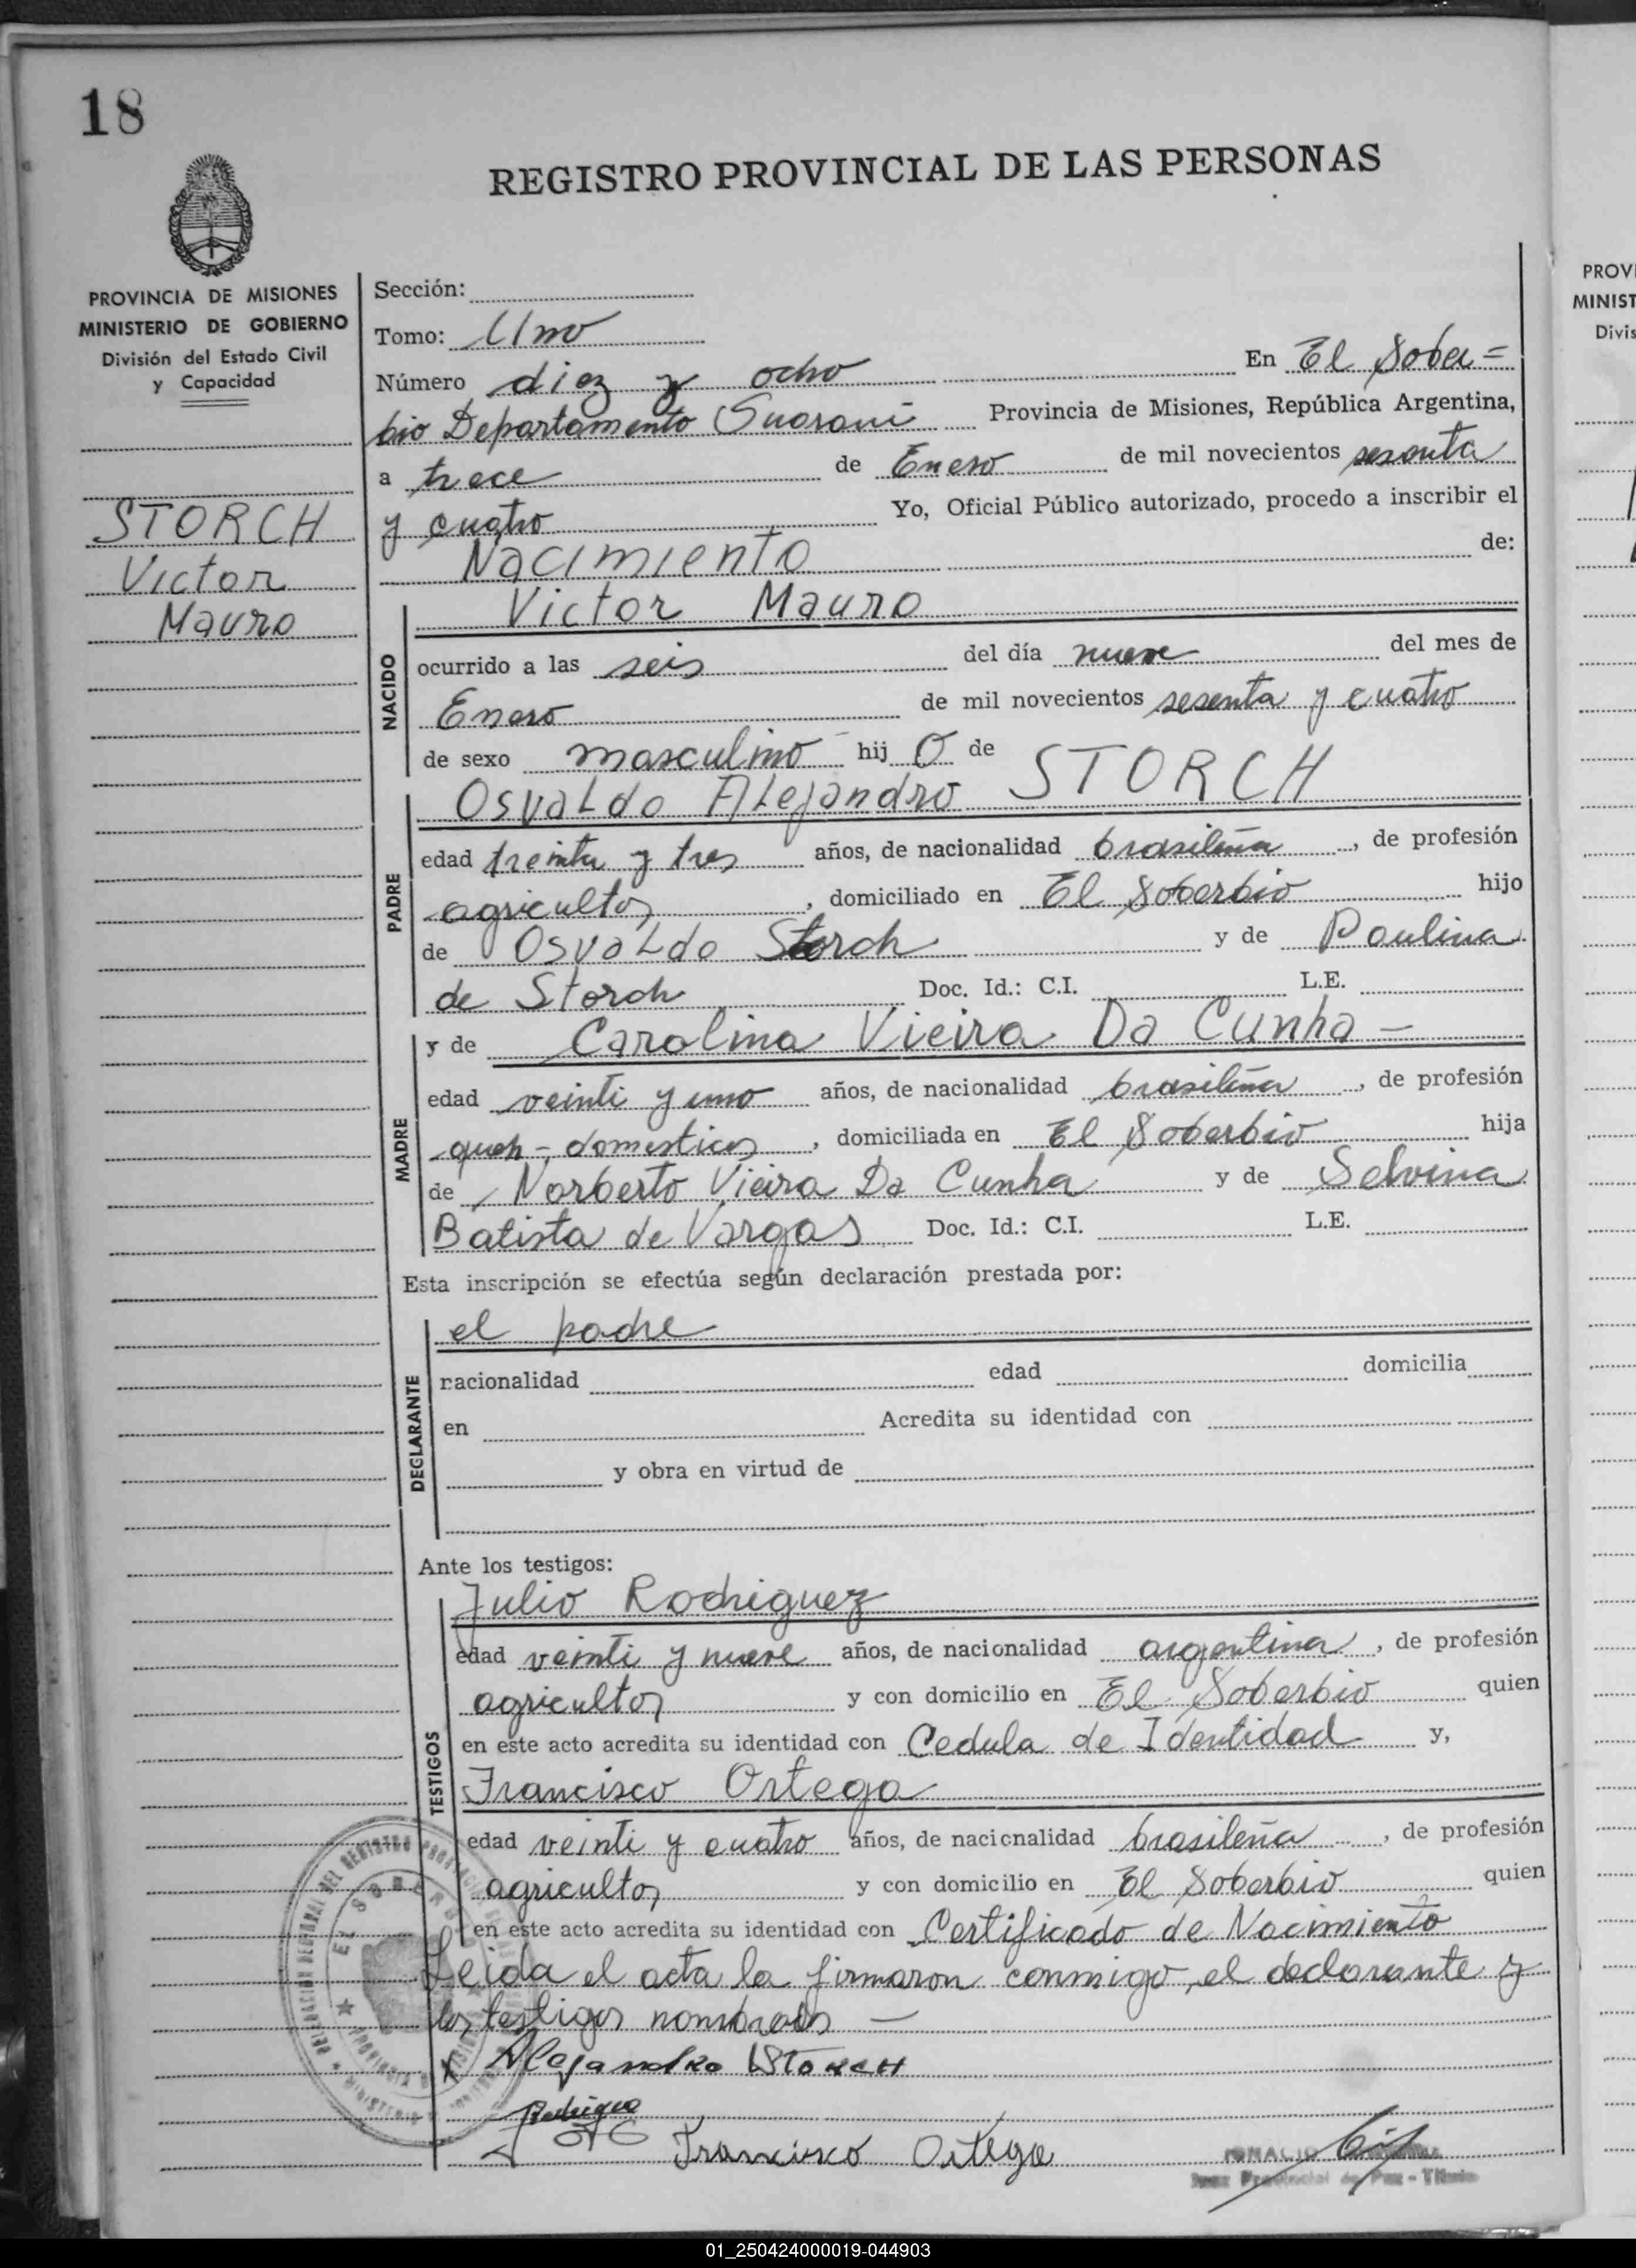 18
REGISTRO PROVINCIAL DE LAS PERSONAS
PROVINCIA DE MISIONES
MINISTERIO DE GOBIERNO
División del Estado Civil
y Capacidad
STORCH
Victor
Mauro
Sección:
Tomo: Uno
Número diez y ocho En El Sober=
bio Departamento Guarani Provincia de Misiones, República Argentina,
a trece de Enero de mil novecientos sesenta
y cuatro Yo, Oficial Público autorizado, procedo a inscribir el
Nacimiento de:
NACIDO
Victor Mauro
ocurrido a las seis del día nueve del mes de
Enero de mil novecientos sesenta y cuatro
de sexo masculino hij o de STORCH
PADRE
Osvaldo Alejandro
edad treinta y tres años, de nacionalidad brasileña, de profesión
agricultor, domiciliado en El Soberbio hijo
de Osvaldo Storch y de Paulina
de Storch Doc. Id.: C.I. L.E.
MADRE
y de Carolina Vieira Da Cunha -
edad veinti y uno años, de nacionalidad brasileña, de profesión
queh-domesticos, domiciliada en El Soberbio hija
de Norberto Vieira Da Cunha y de Selvina
Batista de Vargas Doc. Id.: C.I. L.E.
Esta inscripción se efectúa según declaración prestada por:
DECLARANTE
el padre
nacionalidad edad domicilia
en Acredita su identidad con
y obra en virtud de
Ante los testigos:
TESTIGOS
Julio Rodriguez
edad veinti y nueve años, de nacionalidad argentina, de profesión
agricultor y con domicilio en El Soberbio quien
en este acto acredita su identidad con Cedula de Identidad y,
Francisco Ortega
edad veinti y cuatro años, de nacionalidad brasileña, de profesión
agricultor y con domicilio en El Soberbio quien
en este acto acredita su identidad con Certificado de Nacimiento
Leida el acta la firmaron conmigo, el declarante y
los testigos nombrados —
x Alejandro Storch
Francisco Ortega
IGNACIO
Juez Provincial de Paz - Titular
EL SOBERBIO
PROV
MINIST
Divis
01_250424000019-044903